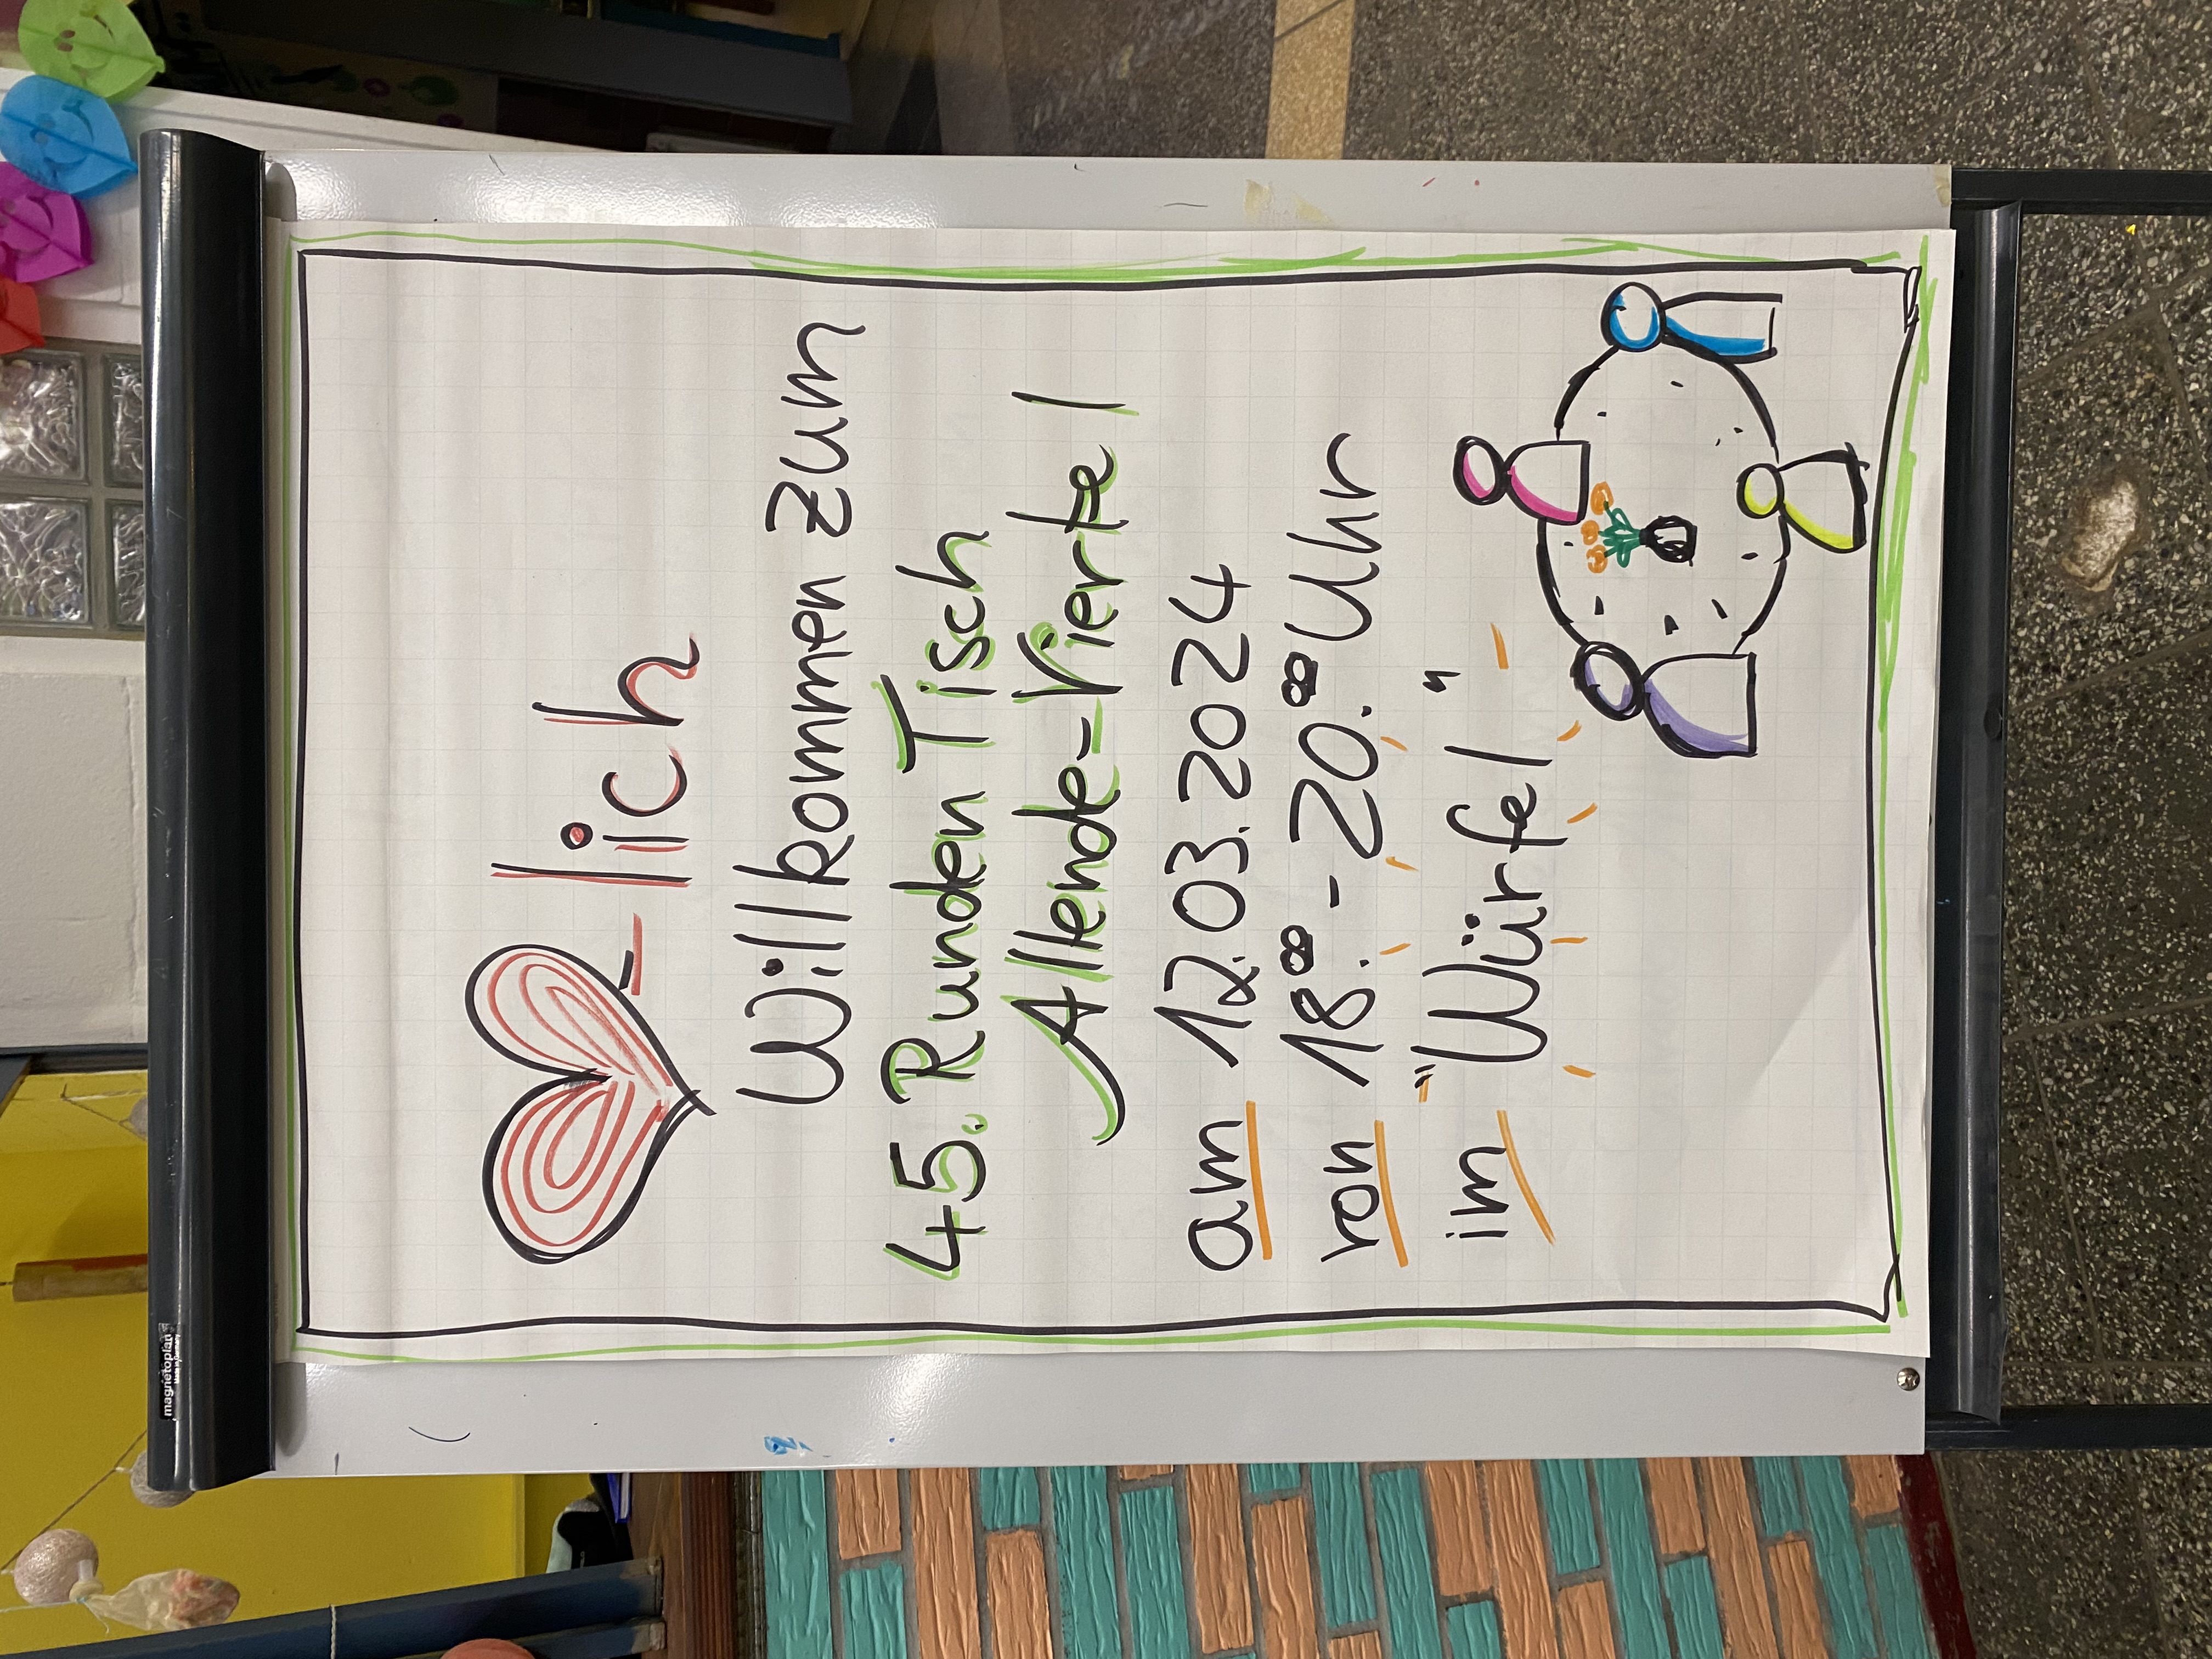 -lich
Willkommen zum
45. Runden Tisch
Allende-Viertel
am 12.03.2024
von 18.00 - 20.00 Uhr
im "Würfel"
magnetoplan